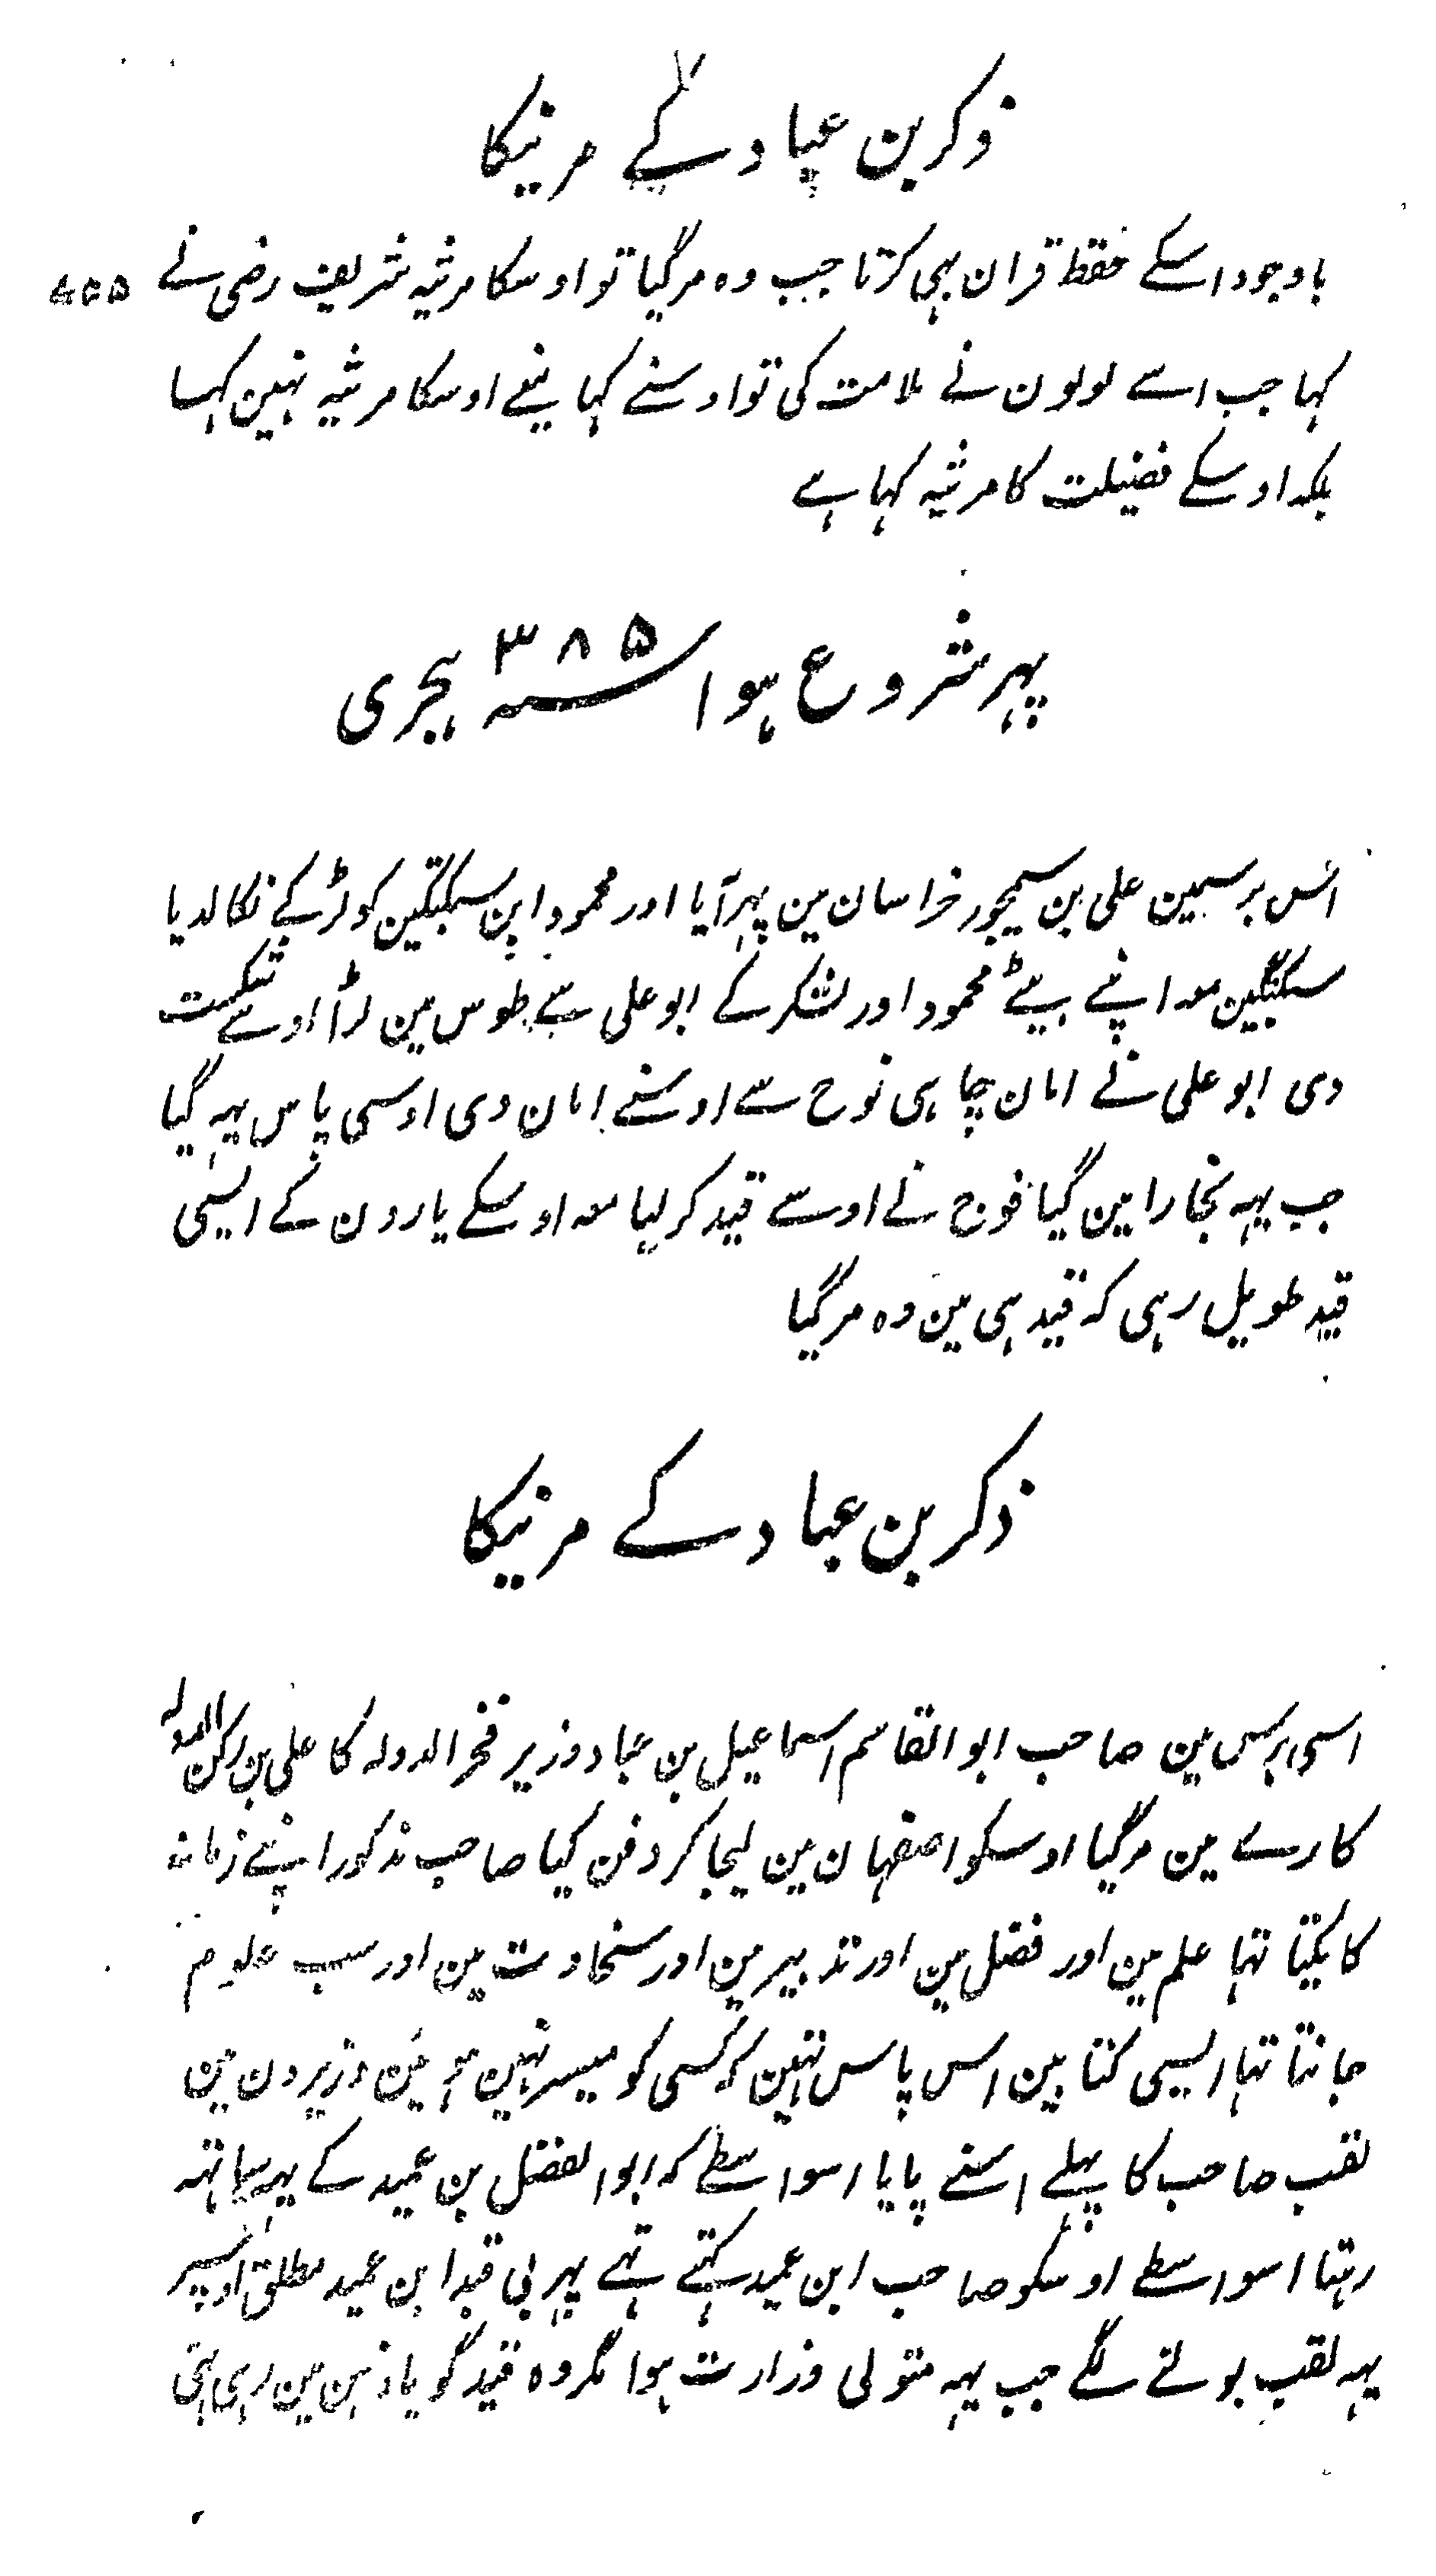 ذکر بن عباد کے مرنیکا
باوجود اسکے حفظ قران بہی کرتا جب وہ مرگیا تو اوسکا مرثیہ شریف رضی نے
کہا جب اسے لوگون نے ملامت کی تو اوسنے کہا مینے اوسکا مرثیہ نہین کہا
بلکہ اوسکے فضیلت کا مرثیہ کہا ہے
پہر شروع ہوا سنہ ۳۸۵ ہجری
اس برسمین علی بن سیمجور خراسان مین پہر آیا اور محمود ابن سبکتگین کو لڑکے نکالدیا
سبکتگین معہ اپنے بیٹے محمود اور لشکر کے ابو علی سے طوس مین لڑا اوسے شکست
دی ابو علی نے امان چاہی نوح سے اوسنے امان دی اوسی پاس یہہ گیا
جب یہہ بخارا مین گیا فوج نے اوسے قید کر لیا معہ اوسکے یارون کے ایسی
قید طویل رہی کہ قید ہی مین وہ مرگیا
ذکر بن عباد کے مرنیکا
اسی برس مین صاحب ابو القاسم اسماعیل بن عباد وزیر فخر الدولہ کا علی بن رکن الدولہ
کا رے مین مرگیا اوسکو اصفہان مین لیجا کر دفن کیا صاحب مذکور اپنے زمانہ
کا یکتا تہا علم مین اور فضل مین اور تدبیر مین اور سخاوت مین اور سب علوم
جانتا تہا ایسی کتابین اس پاس تہین کہ کسی کو میسر نہین ہوئین وزیرون مین
لقب صاحب کا پہلے اسنے پایا اسواسطے کہ ابو الفضل بن عمید کے یہہ ساتہہ
رہتا اسواسطے اوسکو صاحب ابن عمید کہتے تہے پہر بی قید ابن عمید مطلق اوسپر
یہہ لقب بولنے لگے جب یہہ متولی وزارت ہوا مگر وہ قید گویا ذہن مین رہی تہی